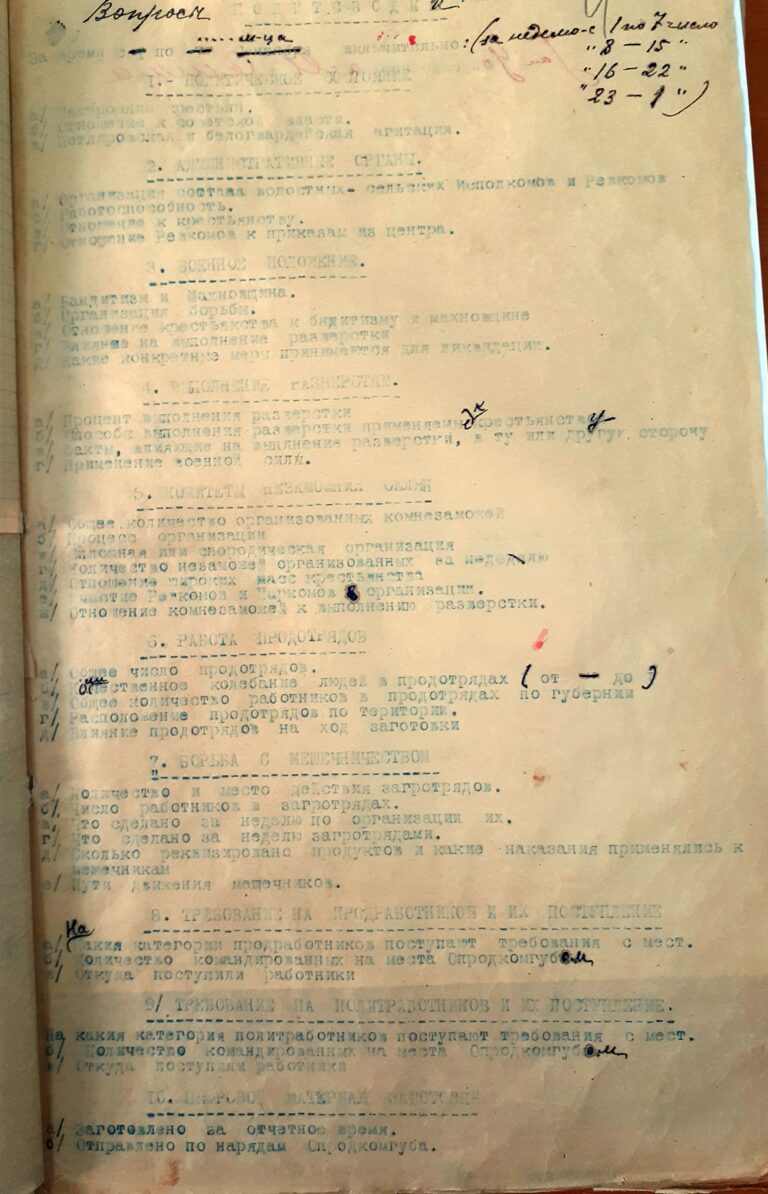 Вопросы ПОЛИТСВОДКИ
За время с — по — м-ца включительно: (за неделю-с 1 по 7 число
" 8 – 15 "
" 16 – 22 "
" 23 – 1 ")
1.- ПОЛИТИЧЕСКОЕ
а/ Настроение крестьян.
б/ Отношение к советской власти.
в/ Петлюровская и белогвардейская агитация.
2. АДМИНИСТРАТИВНЫЕ ОРГАНЫ.
а/ Организация состава волостных- сельских Исполкомов и Ревкомов
б/ Работоспособность.
в/ Отношение к крестьянству.
г/ Отношение Ревкомов к приказам из центра.
3. ВОЕННОЕ ПОЛОЖЕНИЕ.
а/ Бандитизм и Махновщина.
б/ Организация борьбы.
в/ Отношение крестьянства к бндитизму и махновщине
г/ Влияние на выполнение разверстки
д/ Какие конкретные меры принимаются для ликвидации.
4. ВЫПОЛНЕНИЕ РАЗВЕРСТКИ.
а/ Процент выполнения разверстки
б/ Способы выполнения разверстки применяемы к крестьянству
в/ Факты, влияющие на выплнение разверстки, в ту или другую сторону
г/ Применение военной силы.
5. КОМИТЕТЫ НЕЗАМОЖНИХ СЕЛЯН
а/ Общее количество организованных комнезаможей
б/ Процесс организации
в/ Сплошная или спородическая организация
г/ Количество незаможей организованных за неделю
д/ Отношение широких масс крестьянства
е/ Участие Ревкомов и Паркомов в организации.
ж/ Отношение комнезаможей к выполнению разверстки.
6. РАБОТА ПРОДОТРЯДОВ
а/ Общее число продотрядов.
б/ колебание людей в продотрядах ( от — до )
в/ Общее количество работников в продотрядах по губернии
г/ Расположение продотрядов по територии.
д/ Влияние продотрядов на ход заготовки
7. БОРЬБА С МЕШЕЧНИЧЕСТВОМ
а/ Количество и место действия загротрядов.
б/ Число работников в загротрядах.
в/ Что сделано за неделю по организации их.
г/ Что сделано за неделю загротрядами.
д/ Сколько реквизировано продуктов и какие наказания применялись к
мешечникам
е/ Пути движения мешечников.
8. ТРЕБОВАНИЕ НА ПРОДРАБОТНИКОВ И ИХ ПОСТУПЛЕНИЕ
а/ На какия категории продработников поступают требования с мест.
б/ Количество командированных на места Опродкомгубом
в/ Откуда поступили работники
9/ ТРЕБОВАНИЕ НА ПОЛИТРАБОТНИКОВ И ИХ ПОСТУПЛЕНИЕ.
На какия категория политработников поступают требования с мест.
б/ Количество командированных на места Опродкомгубом
в/ Откуда поступили работники
10. ЦИФРОВОЙ МАТЕРИАЛ ЗАГОТОВКИ
а/ Заготовлено за отчетное время.
б/ Отправлено по нарядам Опродкомгуба.